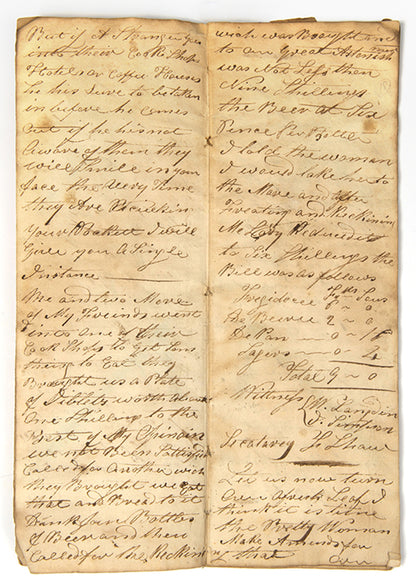 But if A Stranger Goes
into their Cook Shop
Hotels or Coffee Houses
he his Sure to be taken
in before he comes
out if he his not
aware of them they
will Smile in your
face the Very Time
they Are Picking
Your Pockett I will
Give you A Single
Instance
Me and two More
of My Friends went
into one of their
Cook Shops to Get Some
thing to Eat they
Brought us a Plate
of Vittels worth About
One Shilling to the
Best of My Opinion
we not Been Sattisfied
Called for Another wich
they Brought we eat
that and Bread to it
Drank four Bottles
of Beer and then
Called for the Reckning
wich was Brought and
to our Great Astonish
ment
was Not Less then
Nine Shillings
the Beer at Six
Pence Per Bottle
I told the woman
I would take her to
the Mare and after
Sweating and
My Lady Reduced it
to Six Shillings the
Bill was as follows
Sous
2 ~ 0
De Pan — 0 ~ 16
— 0 ~ 4
Total 9 ~ 0
Witness Wm Langdon
D. Simpson
Secatarey Shaw
Let us now turn
Over a fresh Leaf I
think it is time
the Pretty Woman
Make Amends for
that